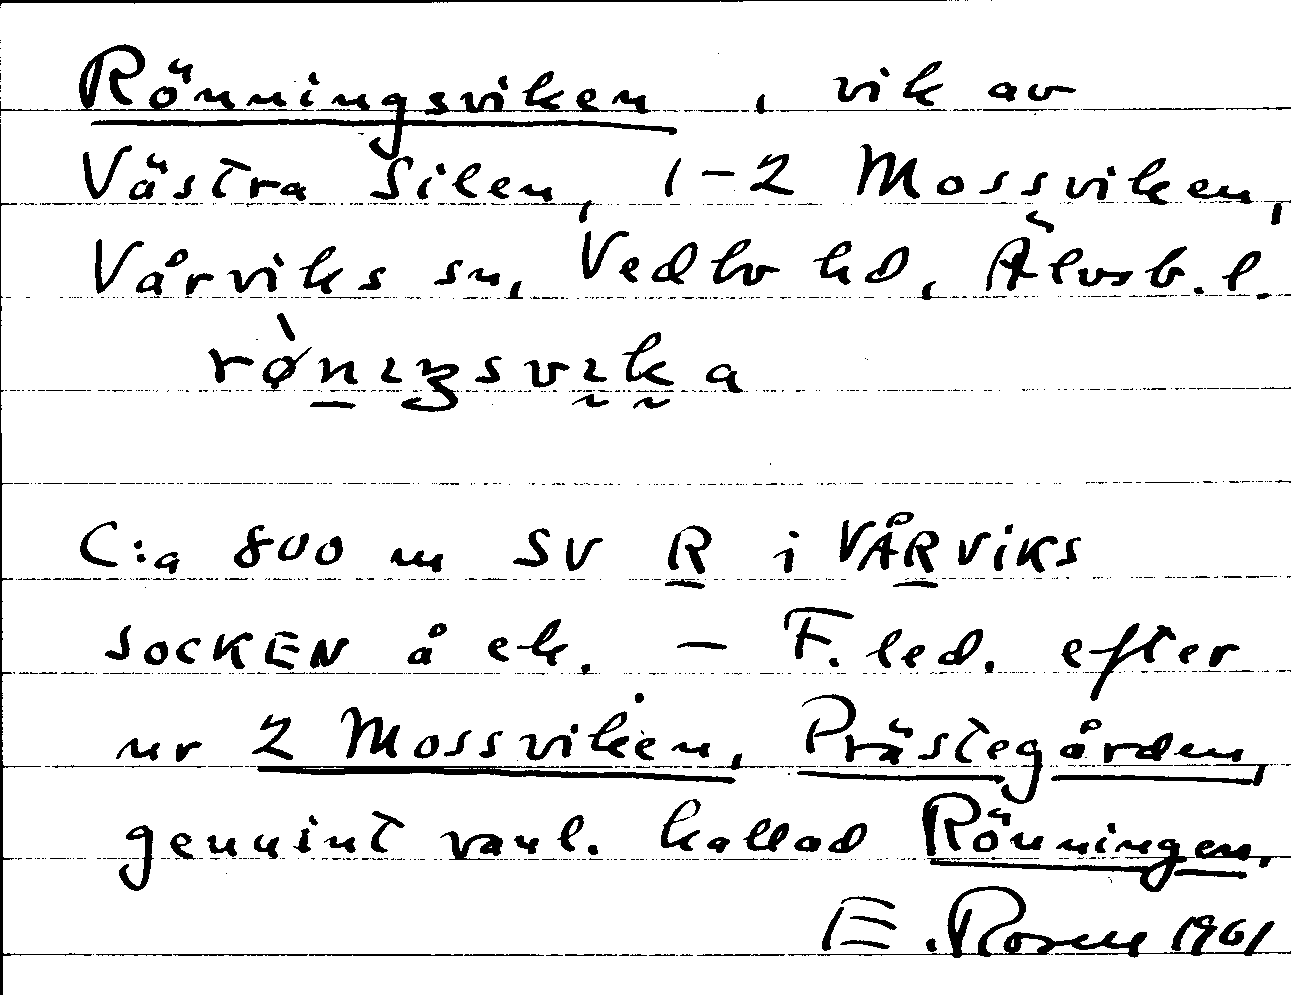 Rönningsviken, vik av
Västra Silen, 1-2 Mossviken,
Vårviks sn, Vedbo hd, Älvsb. l.
C:a 800 m SV R i VÅRVIKS
SOCKEN å ek. – F. led. efter
nr 2 Mossviken, Prästegården,
genuint vanl. kallad Rönningen.
E. Rosen 1961